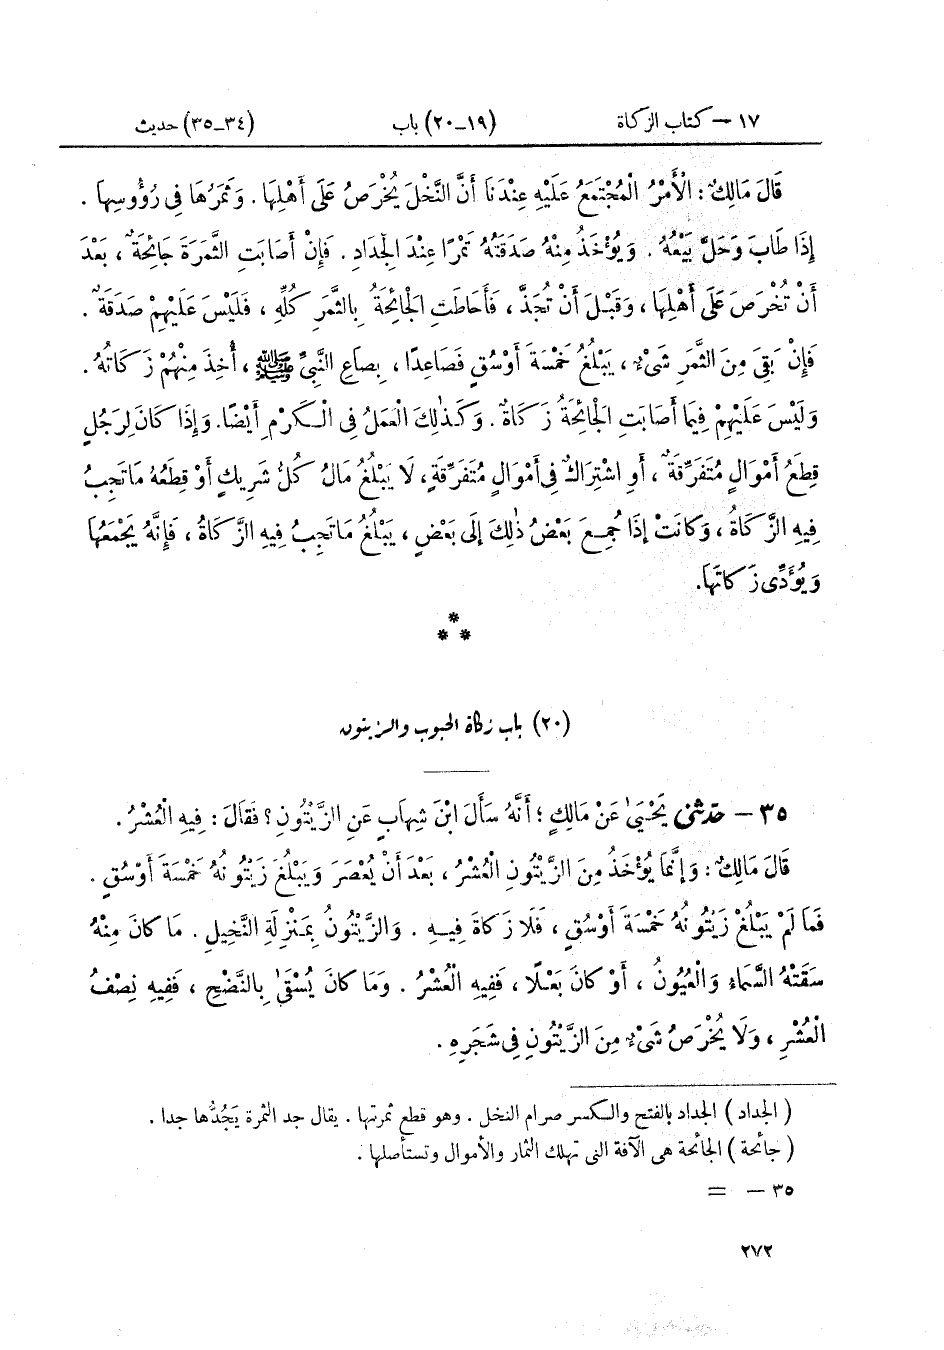 ١٧ – كتاب الزكاة (١٩–٢٠) باب (٣٤–٣٥) حديث
قَالَ مَالِكٌ : الْأَمْرُ الْمُجْتَمَعُ عَلَيْهِ عِنْدَنَا أَنَّ النَّخْلَ يُخْرَصُ عَلَى أَهْلِهَا . وَثَمَرُهَا فِى رُؤُوسِهَا .
إِذَا طَابَ وَحَلَّ بَيْعُهُ . وَيُؤْخَذُ مِنْهُ صَدَقَتُهُ تَمْرًا عِنْدَ الْجِدَادِ . فَإِنْ أَصَابَتِ الثَّمَرَةَ جَائِحَةٌ ، بَعْدَ
أَنْ تُخْرَصَ عَلَى أَهْلِهَا ، وَقَبْلَ أَنْ تُجَذَّ ، فَأَحَاطَتِ الْجَائِحَةُ بِالثَّمَرِ كُلِّهِ ، فَلَيْسَ عَلَيْهِمْ صَدَقَةٌ .
فَإِنْ بَقِىَ مِنَ الثَّمَرِ شَىْءٌ ، يَبْلُغُ خَمْسَةَ أَوْسُقٍ فَصَاعِدًا ، بِصَاعِ النَّبِىِّ ﷺ ، أُخِذَ مِنْهُمْ زَكَاتُهُ .
وَلَيْسَ عَلَيْهِمْ فِيمَا أَصَابَتِ الْجَائِحَةُ زَكَاةٌ . وَكَذٰلِكَ الْعَمَلُ فِى الْكَرْمِ أَيْضًا. وَإِذَا كَانَ لِرَجُلٍ
قِطَعُ أَمْوَالٍ مُتَفَرِّقَةٌ ، أَوِ اشْتِرَاكٌ فِى أَمْوَالٍ مُتَفَرِّقَةٍ، لَا يَبْلُغُ مَالُ كُلِّ شَرِيكٍ أَوْ قِطَعُهُ مَا تَجِبُ
فِيهِ الزَّكَاةُ ، وَكَانَتْ إِذَا جُمِعَ بَعْضُ ذٰلِكَ إِلَى بَعْضٍ ، يَبْلُغُ مَا تَجِبُ فِيهِ الزَّكَاةُ ، فَإِنَّهُ يَجْمَعُهَا
وَيُؤَدِّى زَكَاتَهَا.
*
* *
(٢٠) باب زكاة الحبوب والزيتون
٣٥ – حَدَّثَنِى يَحْيَىٰ عَنْ مَالِكٍ ؛ أَنَّهُ سَأَلَ ابْنَ شِهَابٍ عَنِ الزَّيْتُونِ ؟ فَقَالَ : فِيهِ الْعُشْرُ .
قَالَ مَالِكٌ : وَإِنَّمَا يُؤْخَذُ مِنَ الزَّيْتُونِ الْعُشْرُ ، بَعْدَ أَنْ يُعْصَرَ وَيَبْلُغَ زَيْتُونُهُ خَمْسَةَ أَوْسُقٍ .
فَمَا لَمْ يَبْلُغْ زَيْتُونُهُ خَمْسَةَ أَوْسُقٍ ، فَلَا زَكَاةَ فِيهِ . وَالزَّيْتُونُ بِمَنْزِلَةِ النَّخِيلِ . مَا كَانَ مِنْهُ
سَقَتْهُ السَّمَاءُ وَالْعُيُونُ ، أَوْ كَانَ بَعْلًا ، فَفِيهِ الْعُشْرُ . وَمَا كَانَ يُسْقَىٰ بِالنَّضْحِ ، فَفِيهِ نِصْفُ
الْعُشْرِ ، وَلَا يُخْرَصُ شَىْءٌ مِنَ الزَّيْتُونِ فِى شَجَرِهِ .
( الجداد ) الجداد بالفتح والكسر صرام النخل . وهو قطع ثمرتها . يقال جد الثمرة يَجُدُّها جدا .
( جائحة ) الجائحة هى الآفة التى تهلك الثمار والأموال وتستأصلها .
٣٥ – =
٢٧٢